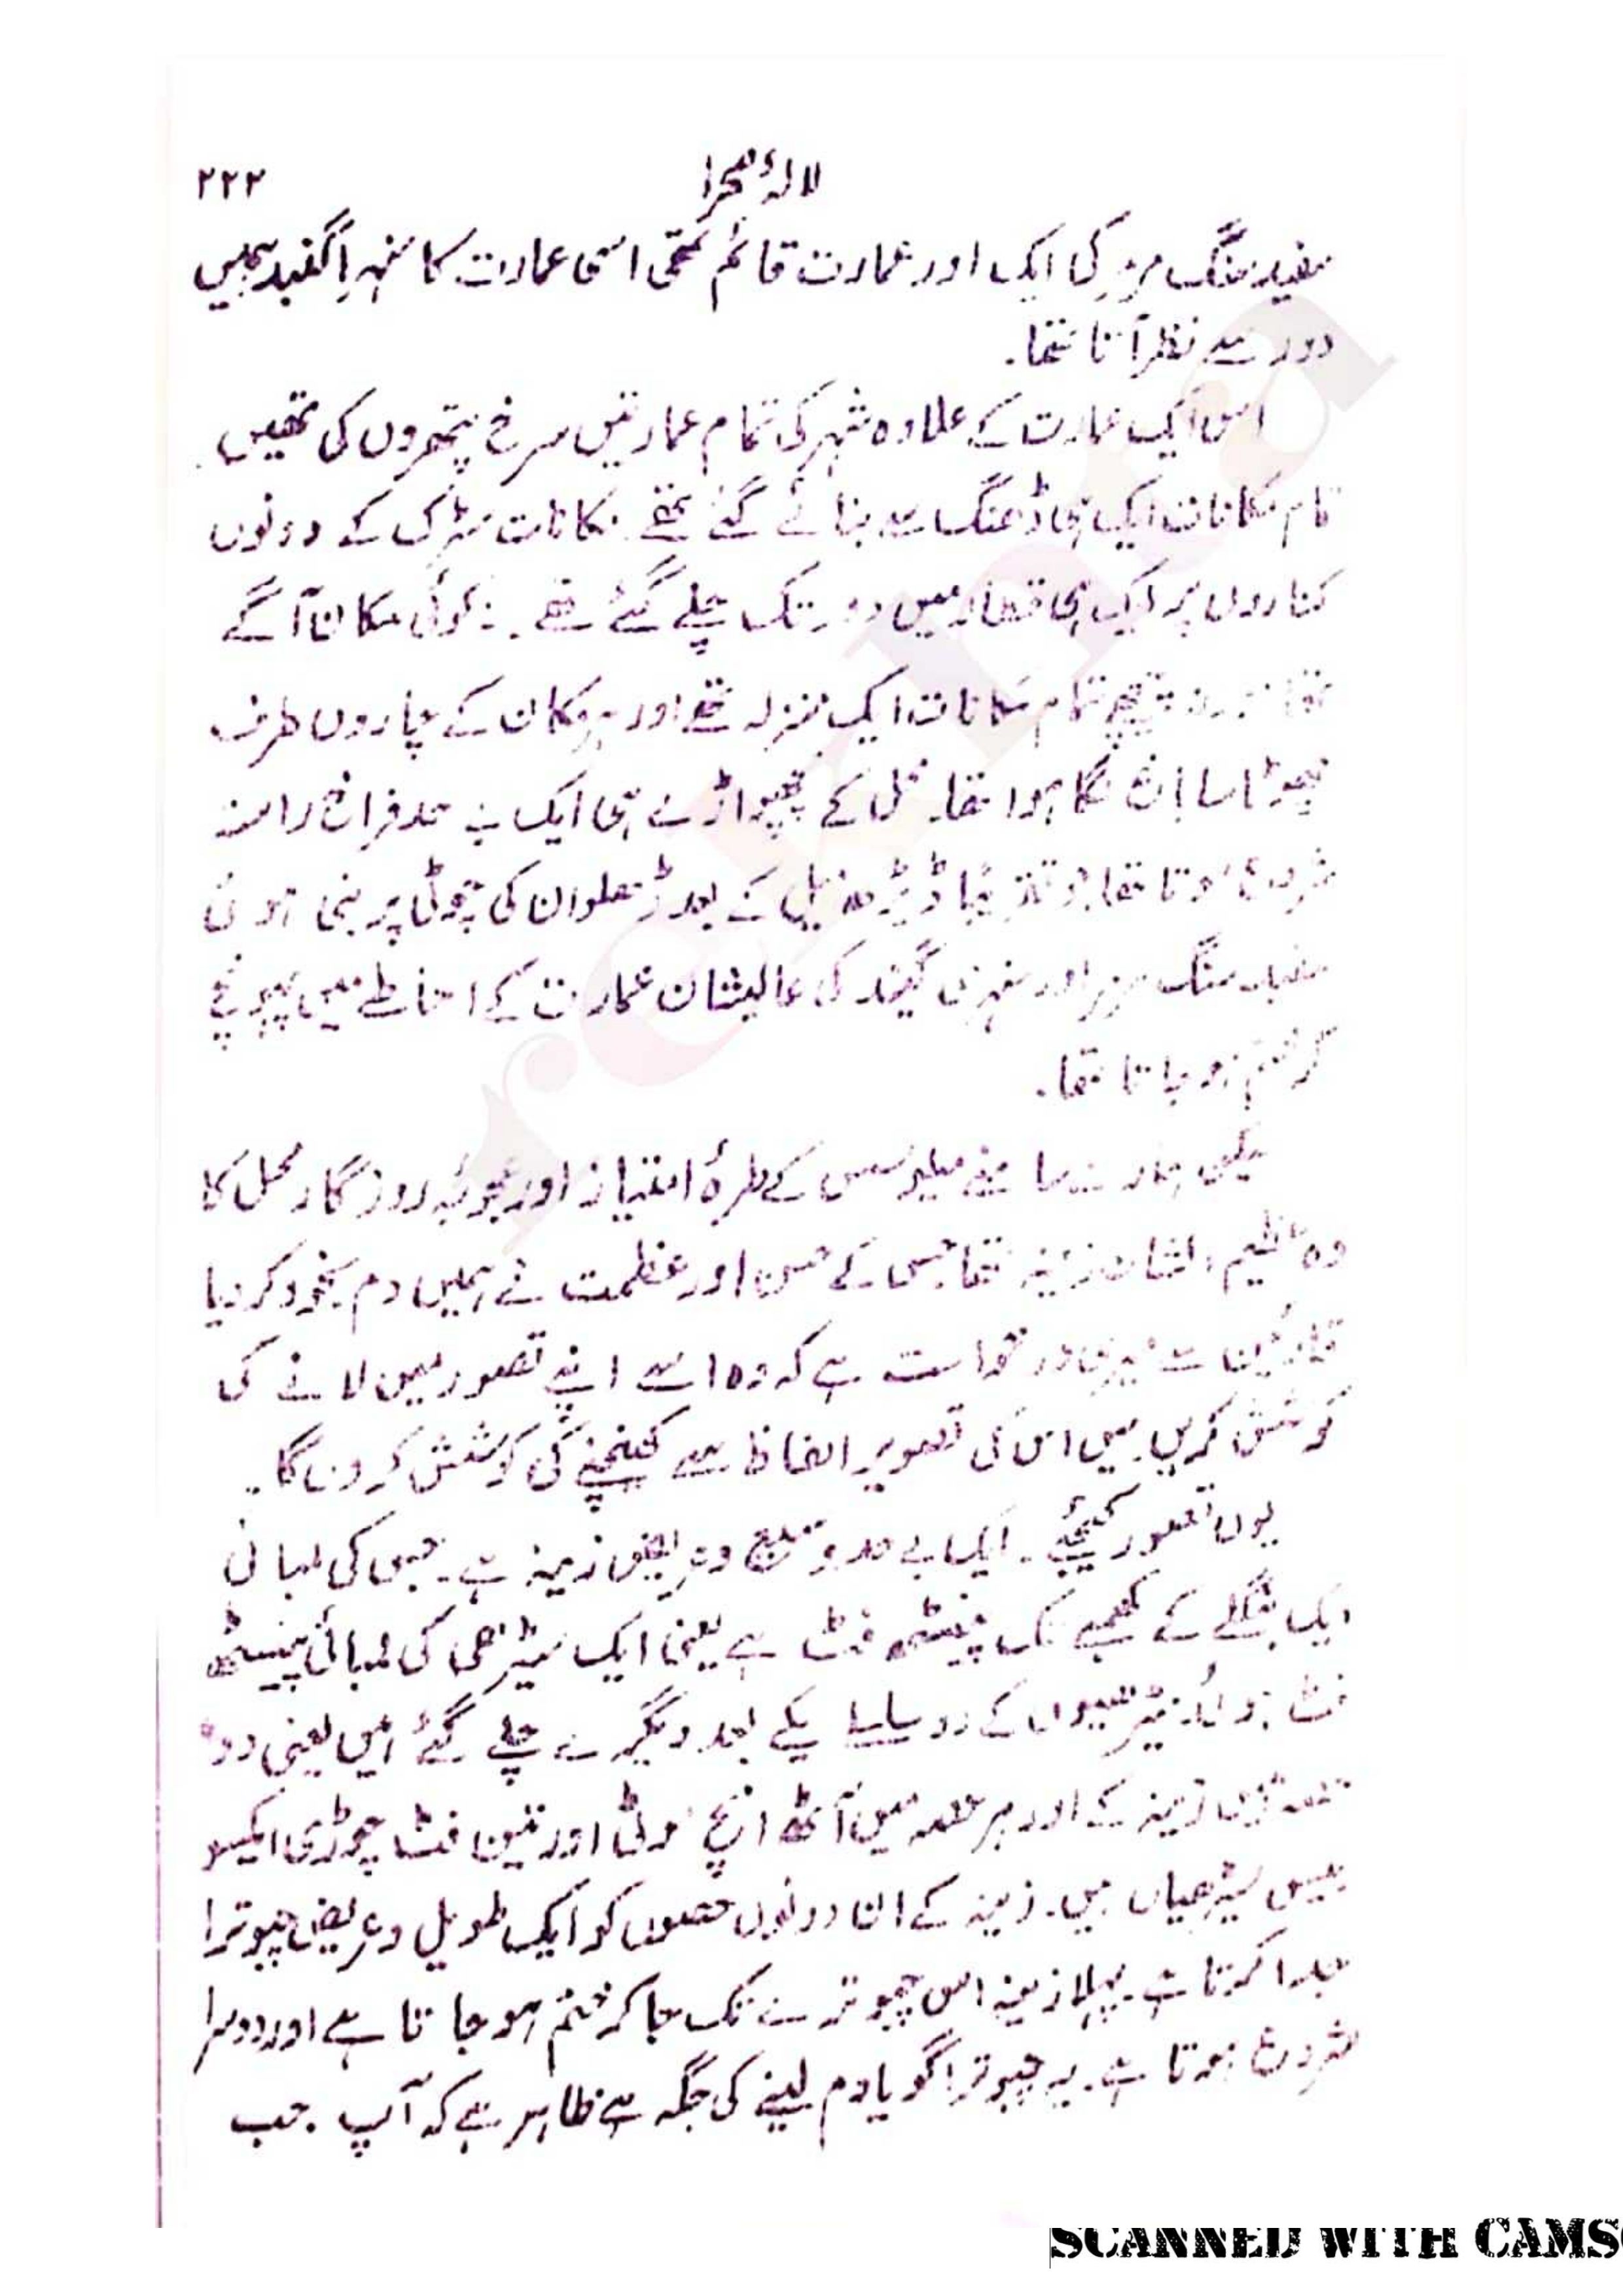 لالۂ صحرا ۲۲۳
سفید سنگ مرمر کی ایک اور عمارت قائم تھی اسی عمارت کا سنہرا گنبد ہمیں
دور سے نظر آتا تھا۔
اس ایک عمارت کے علاوہ شہر کی تمام عمارتیں سرخ پتھروں کی تھیں۔
تمام مکانات ایک ہی ڈھنگ سے بنائے گئے تھے۔ مکانات سڑک کے دونوں
کناروں پر ایک ہی قطار میں دور تک چلے گئے تھے۔ نہ کوئی مکان آگے
تھا نہ پیچھے تمام مکانات ایک منزلہ تھے اور ہر مکان کے چاروں طرف
چھوٹا سا باغ لگا ہوا تھا۔ محل کے پچھواڑے ہی ایک بے حد فراخ راستہ
شروع ہوتا تھا جو تقریباً ڈیڑھ میل کے بعد ڈھلوان کی چوٹی پر بنی ہوئی
سفید سنگ مرمر اور سنہری گنبد کی عالیشان عمارت کے احاطے میں پہونچ
کر ختم ہو جاتا تھا۔
لیکن ہمارے سامنے میلوسس کے طرۂ امتیاز اور عجوبۂ روزگار محل کا
وہ عظیم الشان زینہ تھا جس کے حسن اور عظمت نے ہمیں دم بخود کر دیا
قارئین سے میری درخواست ہے کہ وہ اسے اپنے تصور میں لانے کی
کوشش کریں۔ میں اس کی تصویر الفاظ سے کھینچنے کی کوشش کروں گا۔
یوں تصور کیجئے۔ ایک بے حد وسیع و عریض زینہ ہے۔ جس کی لمبائی
ایک جنگلے کے کھمبے تک پینسٹھ فٹ ہے یعنی ایک سیڑھی کی لمبائی پینسٹھ
فٹ ہوئی۔ سیڑھیوں کے دو سلسلے یکے بعد دیگرے چلے گئے ہیں یعنی دو
حصے ہیں زینہ کے اور ہر حصہ میں آٹھ انچ موٹی اور تین فٹ چوڑی ایکسو
بیس سیڑھیاں ہیں۔ زینہ کے ان دونوں حصوں کو ایک طویل و عریض چبوترا
جدا کرتا ہے۔ پہلا زینہ اس چبوترے تک جا کر ختم ہو جاتا ہے اور دوسرا
شروع ہوتا ہے۔ یہ چبوترا گویا دم لینے کی جگہ ہے ظاہر ہے کہ آپ جب
SCANNED WITH CAMS